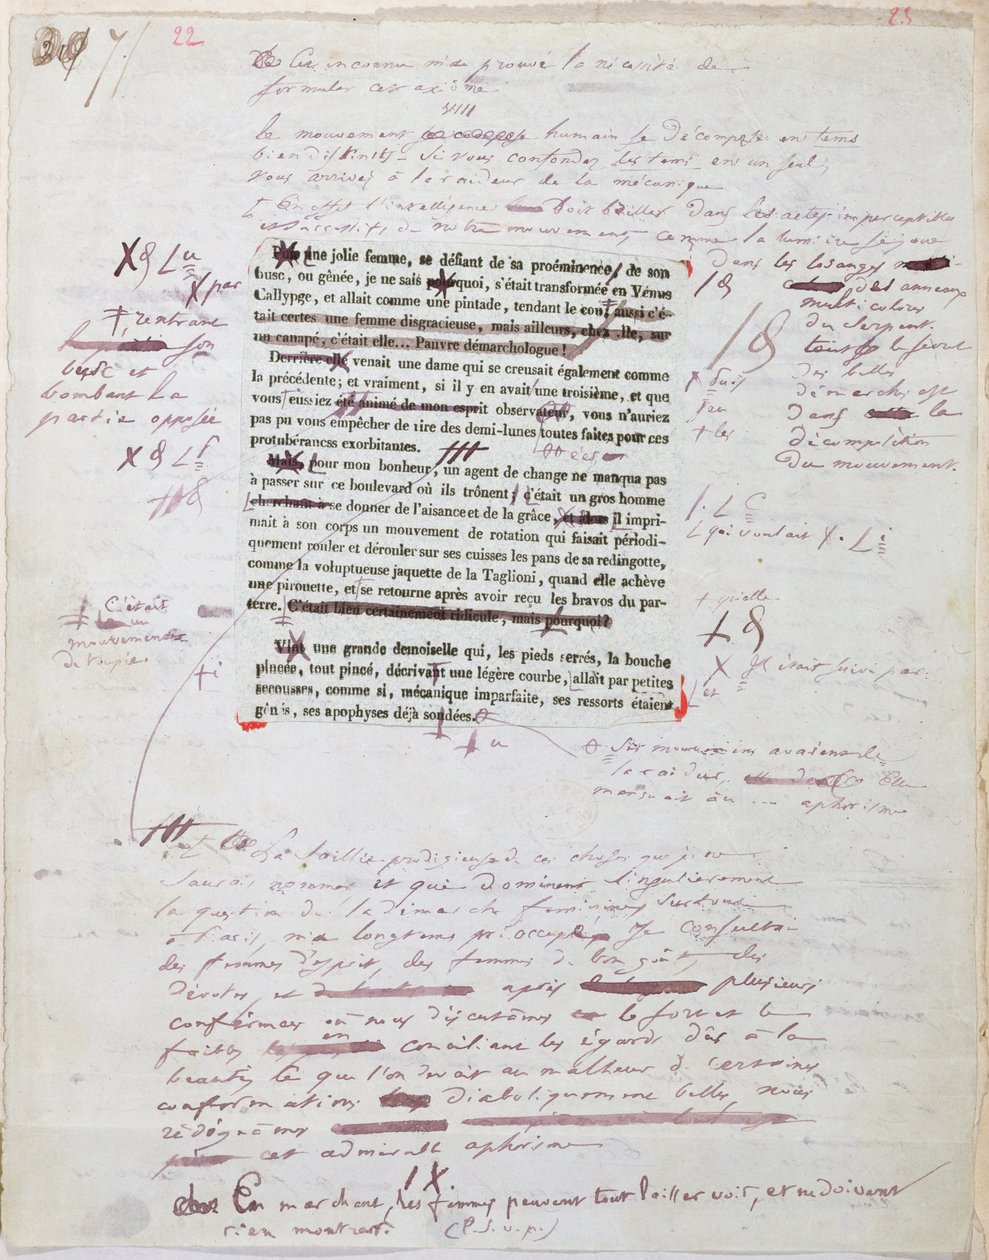 22
23
Cette inconnue m'a prouvé la nécessité de
formuler cet axiôme
VIII
le mouvement humain se décompose en tems
bien distincts. Si vous confondez les tems en un seul,
vous arrivez à la raideur de la mécanique
En effet l'intelligence doit briller dans les actes imperceptibles
et successifs de notre mouvement comme la lumière se joue
dans les losanges
des anneaux
multicolores
du serpent.
tout le secret
des belles
démarches est
dans la
décomposition
du mouvement.
une jolie femme, se défiant de sa proéminence de son
busc, ou gênée, je ne sais pourquoi, s'était transformée en Vénus
Callypge, et allait comme une pintade, tendant le cou, aussi c'é-
tait certes une femme disgracieuse, mais ailleurs, chez elle, sur
un canapé, c'était elle... Pauvre démarchologue !
Derrière elle venait une dame qui se creusait également comme
la précédente; et vraiment, si il y en avait une troisième, et que
vous eussiez été animé de mon esprit observateur, vous n'auriez
pas pu vous empêcher de rire des demi-lunes toutes faites pour ces
protubérancss exorbitantes.
Mais, pour mon bonheur, un agent de change ne manqua pas
à passer sur ce boulevard où ils trônent; c'était un gros homme
cherchant à se donner de l'aisance et de la grâce, et dont il impri-
mait à son corps un mouvement de rotation qui faisait périodi-
quement rouler et dérouler sur ses cuisses les pans de sa redingotte,
comme la voluptueuse jaquette de la Taglioni, quand elle achève
une pirouette, et se retourne après avoir reçu les bravos du par-
terre. C'était bien certainement ridicule, mais pourquoi?
Vint une grande demoiselle qui, les pieds serrés, la bouche
pincée, tout pincé, décrivant une légère courbe, allait par petites
secousses, comme si, mécanique imparfaite, ses ressorts étaient
gênés, ses apophyses déjà soudées.
par
rentrant
son
busc et
bombant la
partie opposée
C'était
un
mouvement
de toupie
qui voulait
Il était suivi par
et
Ses mouvemens avaient de
la raideur, Elle
manquait au ... aphorisme
La saillie prodigieuse de ces choses que je ne
saurais nommer et qui dominent singulièrement
la question de la démarche féminine, surtout
à Paris, m'a longtems préoccupé. Je consultai
des femmes d'esprit, des femmes de bon goût, des
dévotes, et après plusieurs
conférences où nous discutâmes le fort et le
faible en conciliant les égards dûs à la
beauté
conformations diaboliquement belles, nous
rédigeâmes
cet admirable aphorisme
IX.
En marchant, les femmes peuvent tout laisser voir, et ne doivent
rien montrer. (P.S.V.P.)